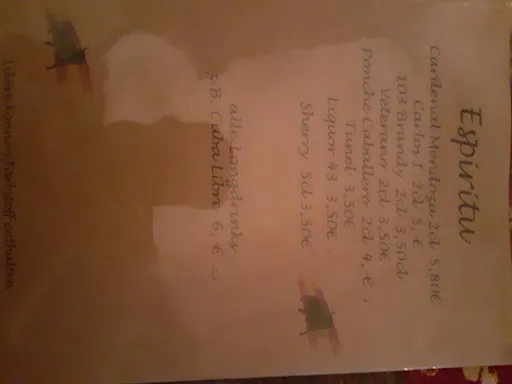 Espíritu
Cardenal Mendoza 2cl 5,80€
Carlos I 2cl 5,-€
103 Brandy 2cl 3,50cl
Veterano 2cl 3,50€
Ponche Caballero 2cl 4,-€,
Tunel 3,50€
Liquor 43 3,50€,
Sherry 5cl 3,50€
alle Longdrinks
z.B. Cuba Libre 6,-€
können Farbstoff enthalten